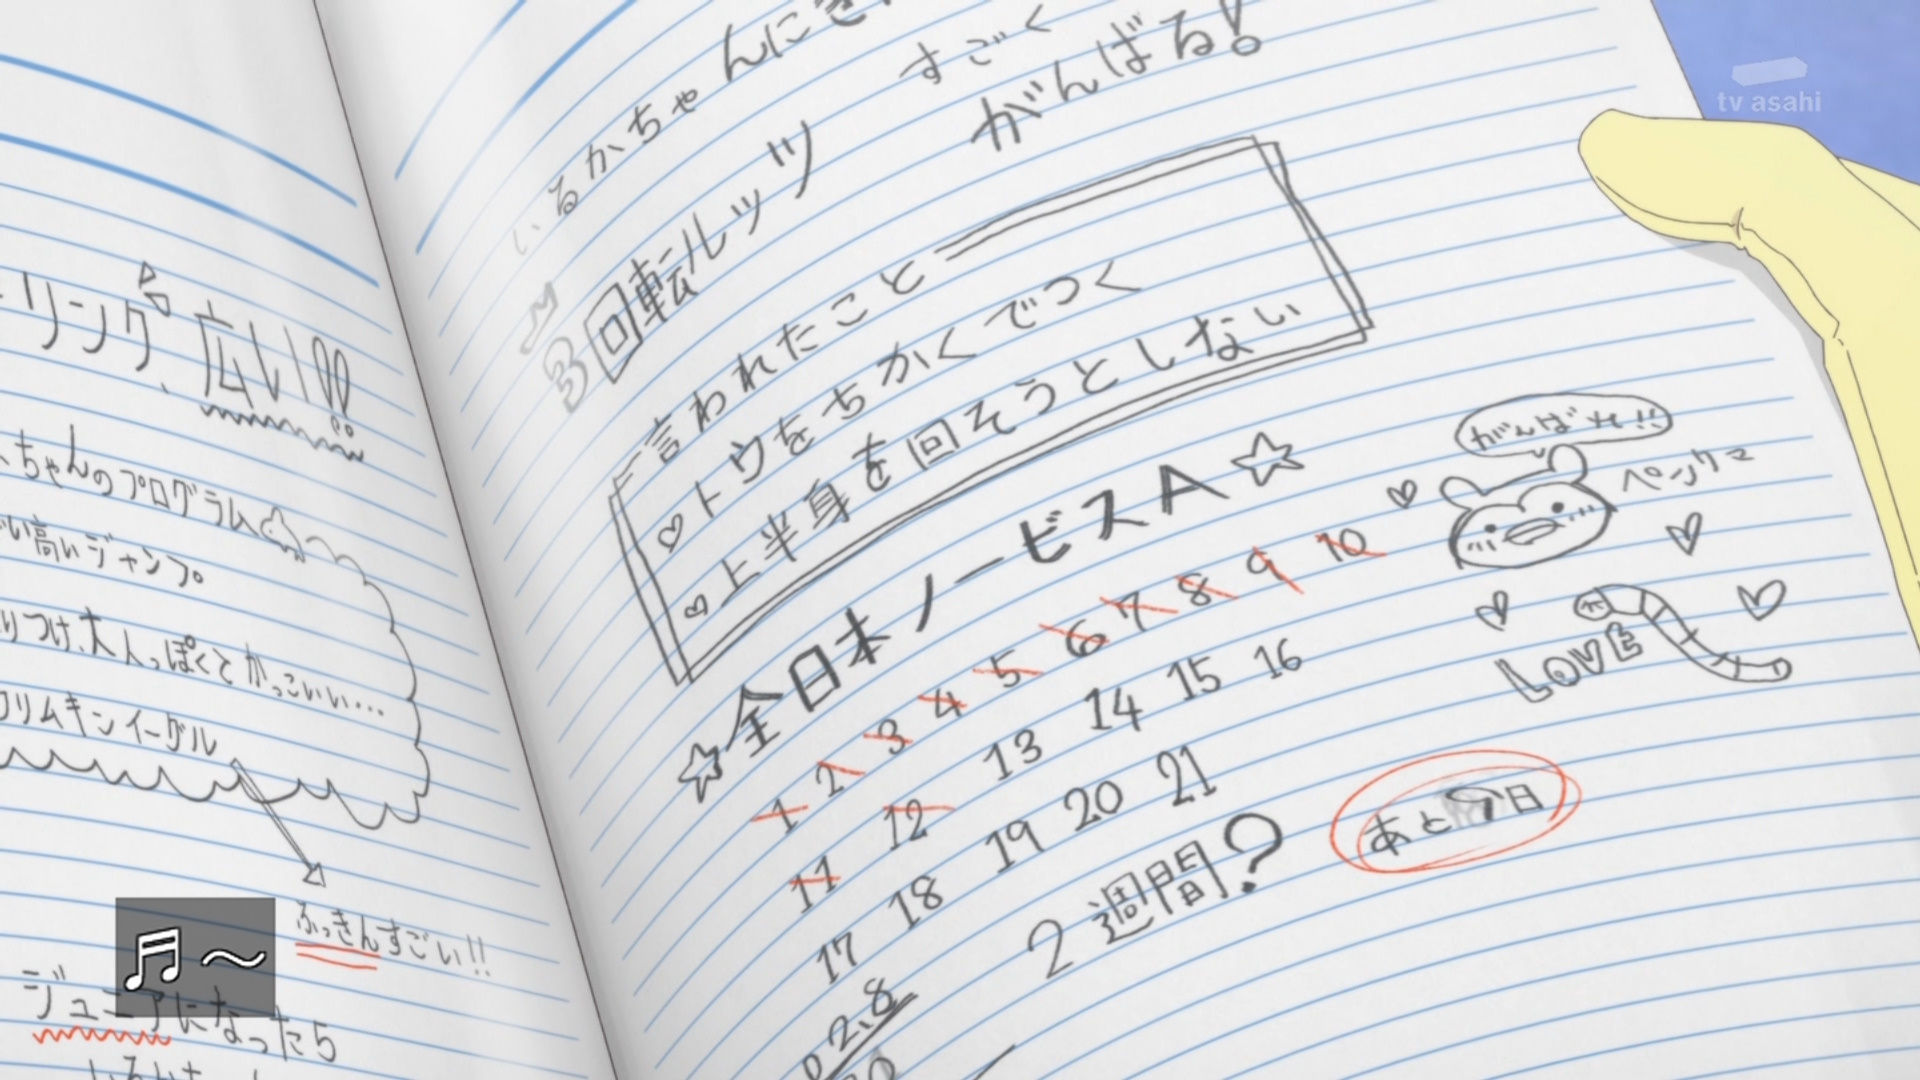 リンク 広い!!
ちゃんのプログラム
い高いジャンプ。
りつけ、大人っぽくてかっこいい…
クリムキンイーグル
ふっきんすごい!!
ジュニアになったら
いるかちゃんに
すごく
がんばる!
3回転ルッツ
言われたこと
♡トウをちかくでつく
♡上半身を回そうとしない
☆全日本ノービスA☆
1 2 3 4 5 6 7 8 9 10
11 12 13 14 15 16
17 18 19 20 21
2週間?
02.8
がんばれ!!
LOVE
あと 日
♬〜
tv asahi